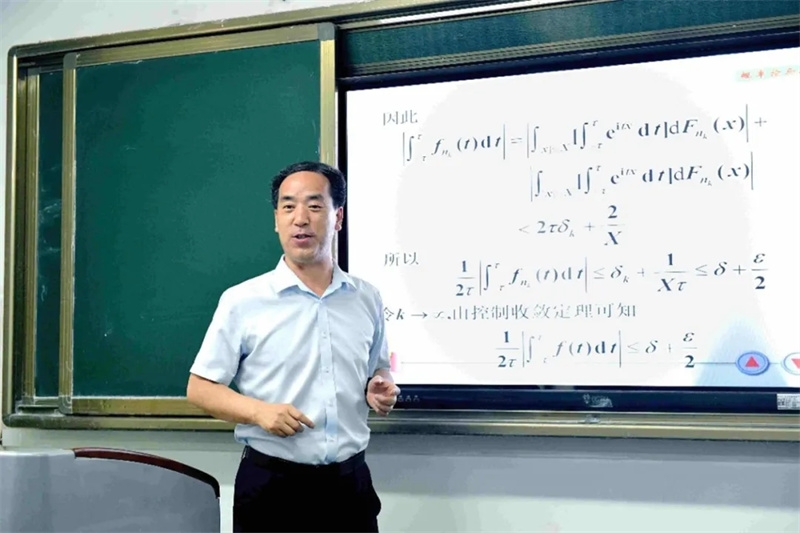 概率论
因此
|∫_{-τ}^{τ} f_{n_k}(t)dt| = |∫_{|x|<X} [∫_{-τ}^{τ} e^{itx} dt]dF_{n_k}(x)| +
|∫_{|x|≥X} [∫_{-τ}^{τ} e^{itx} dt]dF_{n_k}(x)|
< 2τδ_k + 2/X
所以
1/2τ |∫_{-τ}^{τ} f_{n_k}(t)dt| ≤ δ_k + 1/Xτ ≤ δ + ε/2
令k → ∞,由控制收敛定理可知
1/2τ |∫_{-τ}^{τ} f(t)dt| ≤ δ + ε/2